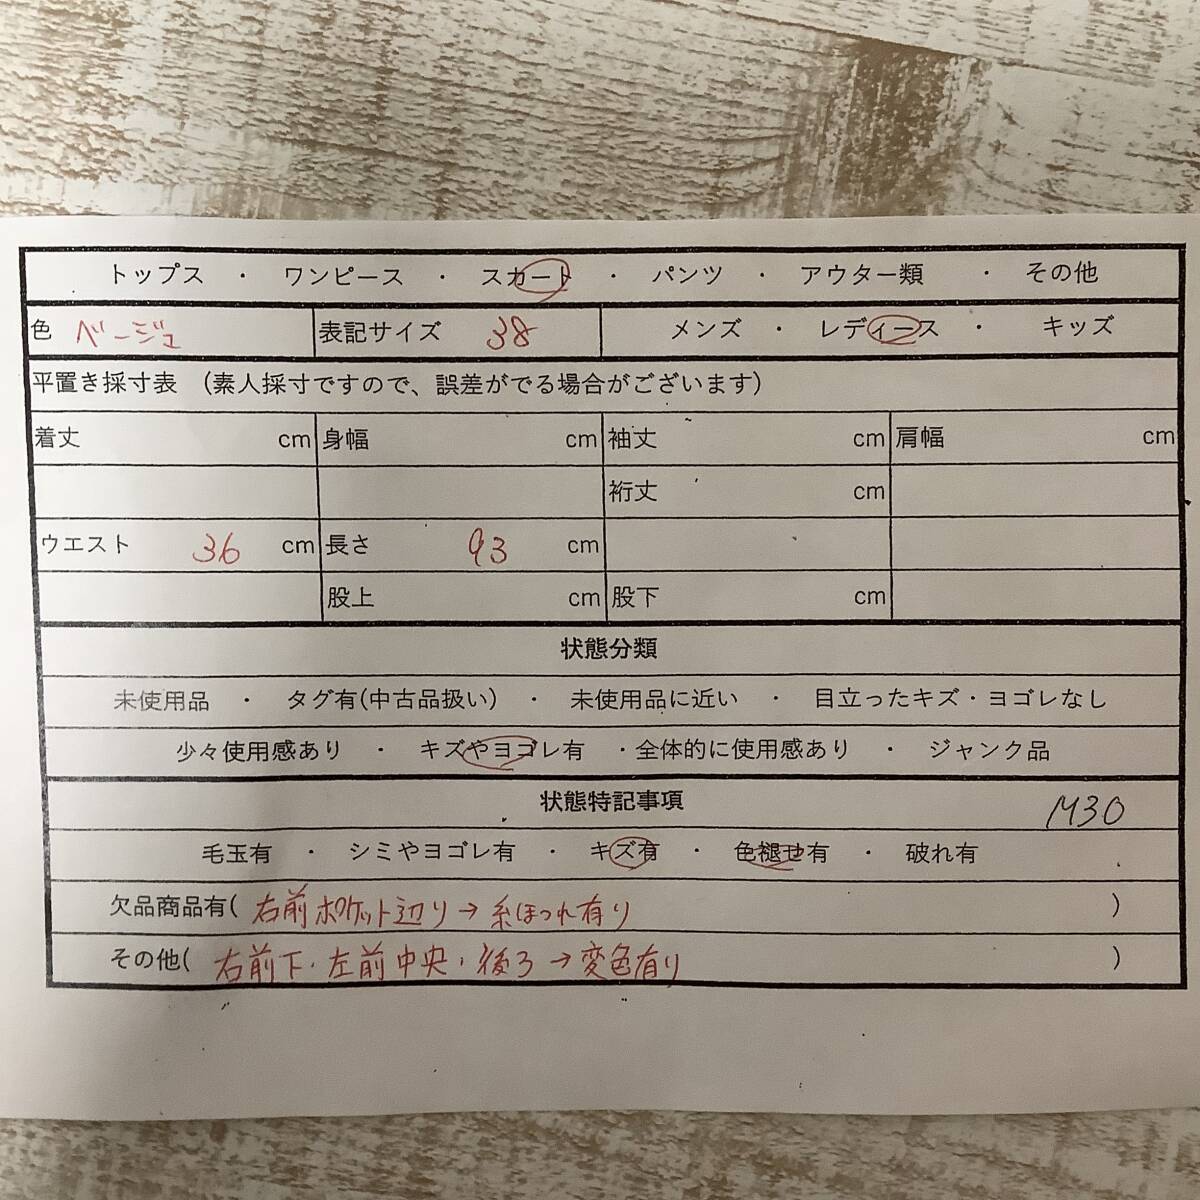 トップス ・ ワンピース ・ スカート ・ パンツ ・ アウター類 ・ その他
色 ベージュ 表記サイズ 38 メンズ ・ レディース ・ キッズ
平置き採寸表 (素人採寸ですので、誤差がでる場合がございます)
着丈 cm 身幅 cm 袖丈 cm 肩幅 cm
裄丈 cm
ウエスト 36 cm 長さ 93 cm
股上 cm 股下 cm
状態分類
未使用品 ・ タグ有(中古品扱い) ・ 未使用品に近い ・ 目立ったキズ・ヨゴレなし
少々使用感あり ・ キズやヨゴレ有 ・全体的に使用感あり ・ ジャンク品
状態特記事項 M30
毛玉有 ・ シミやヨゴレ有 ・ キズ有 ・ 色褪せ有 ・ 破れ有
欠品商品有( 右前ポケット辺り→糸ほつれ有り )
その他( 右前下・左前中央・後ろ→変色有り )